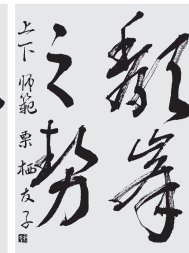 頽峯
之勢
上下 师範 栗栖友子